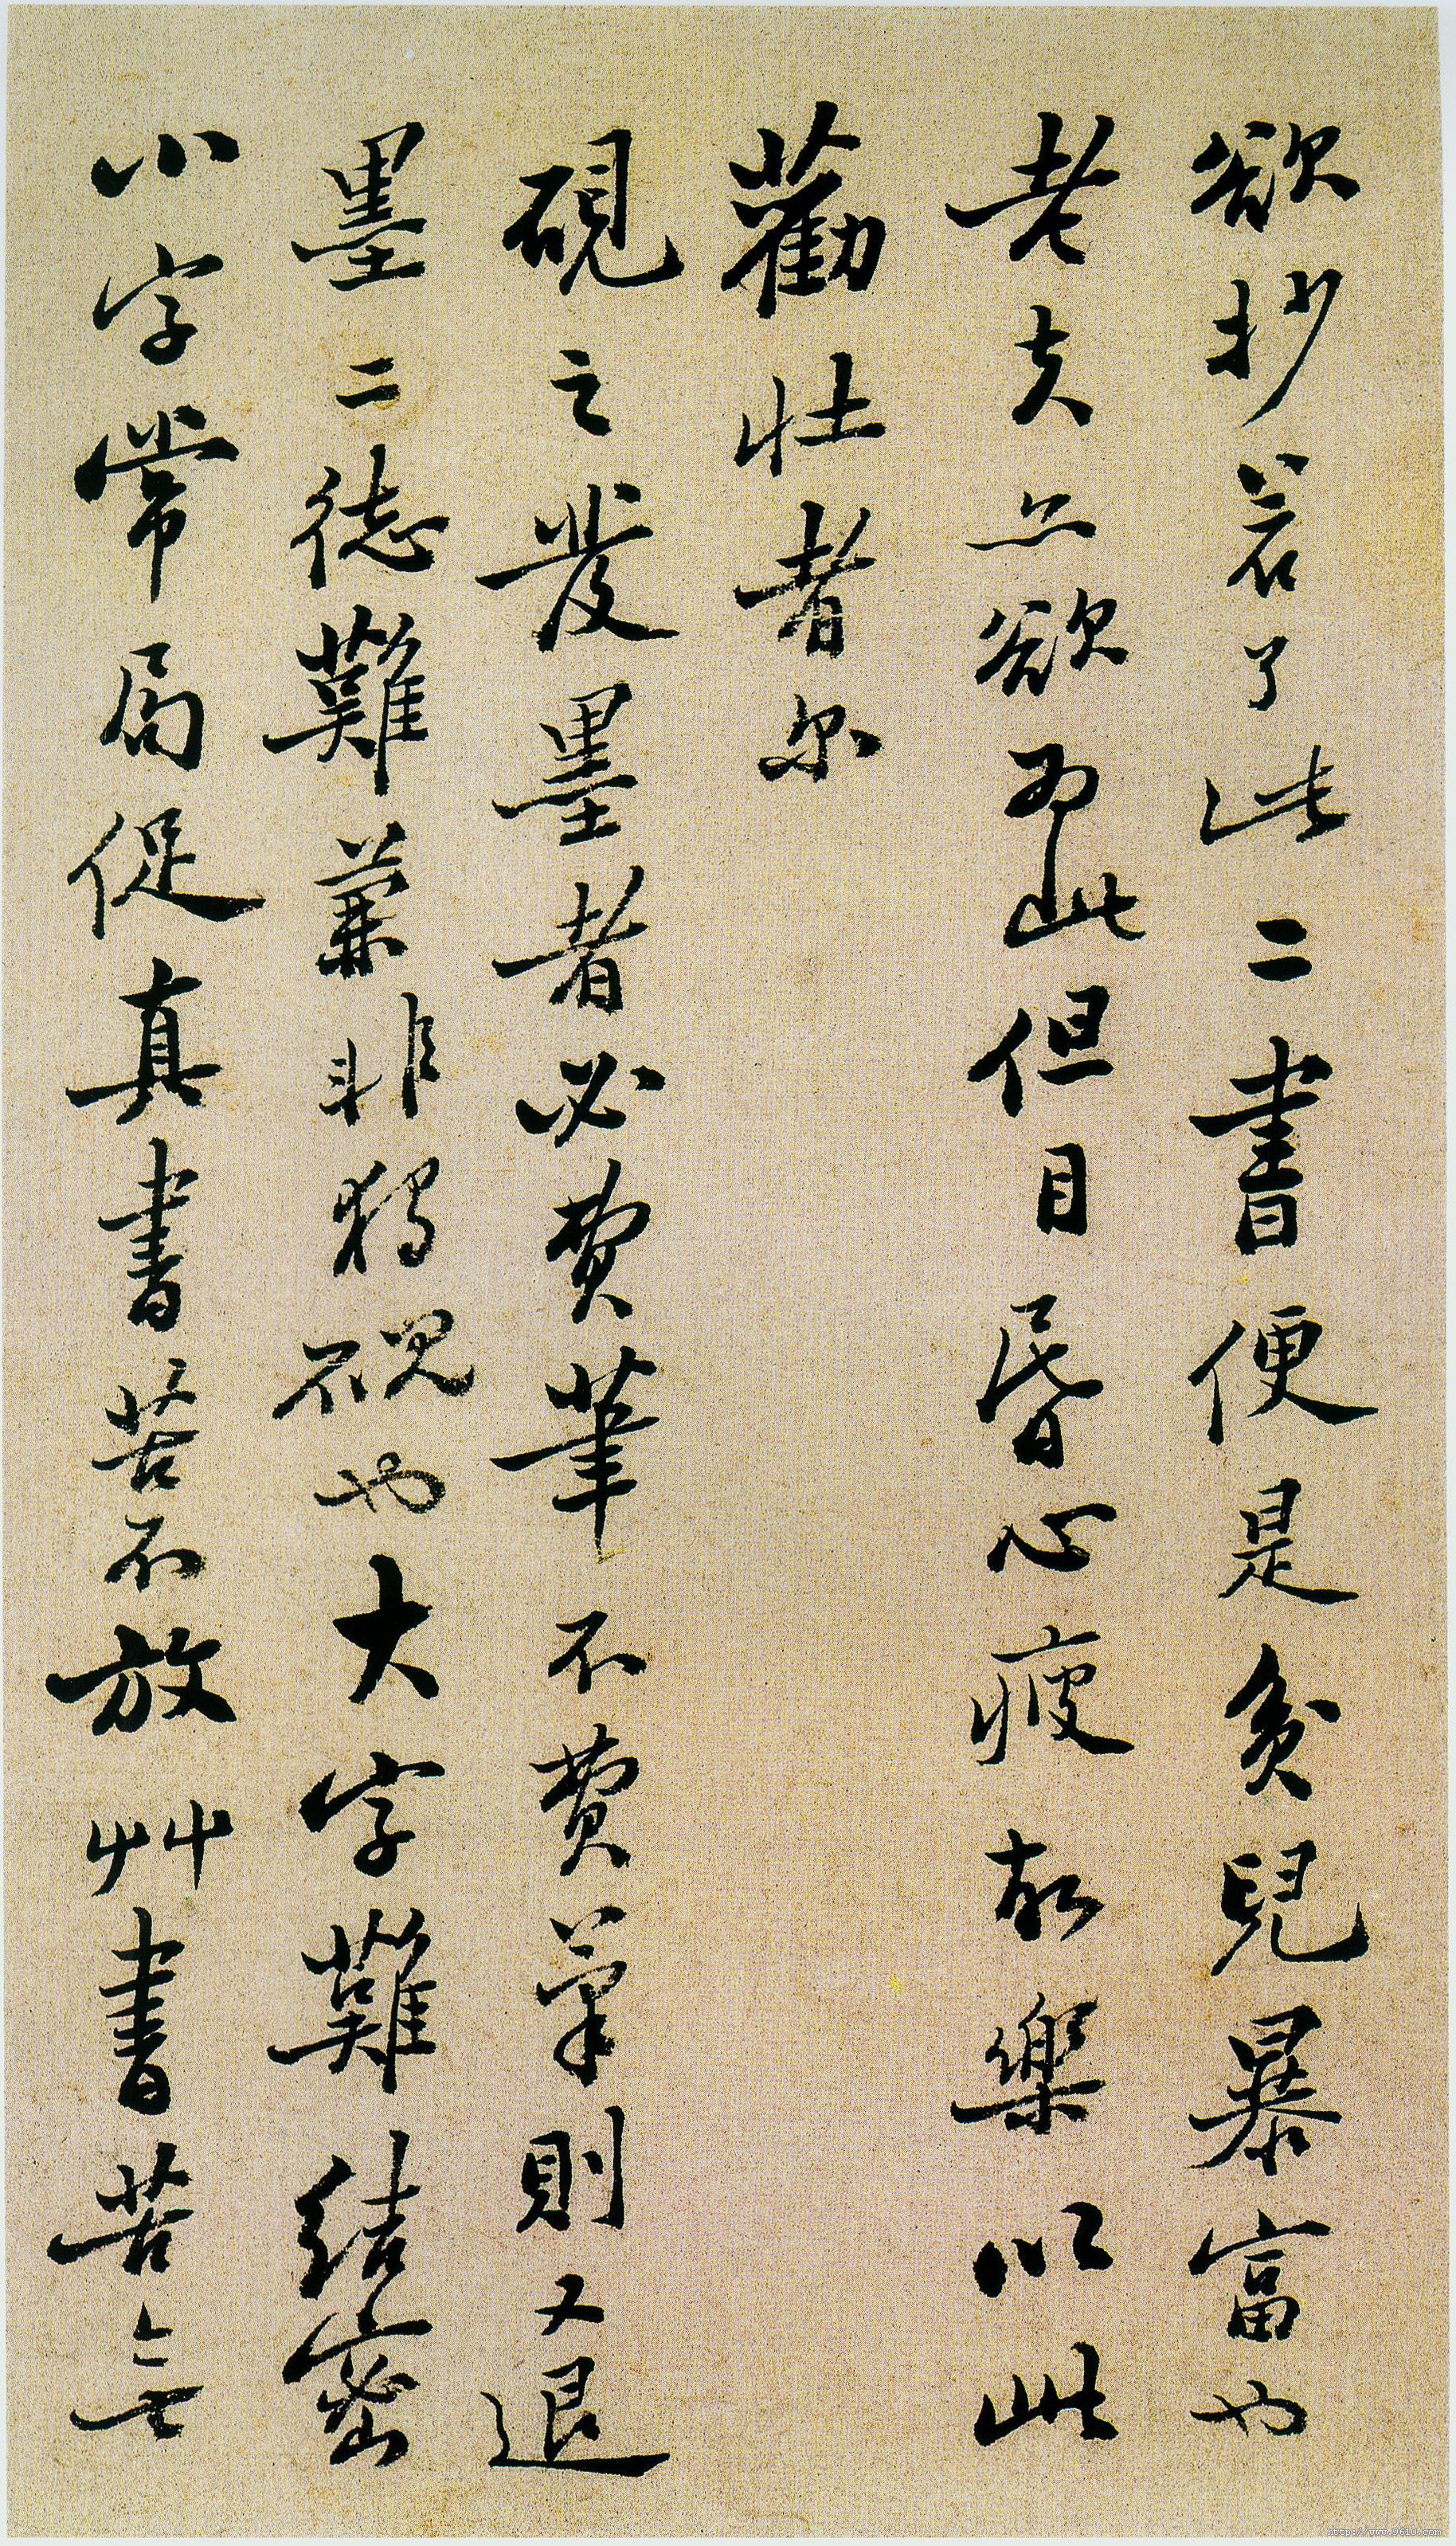 欲抄若了此二書便是貧兒暴富也
老夫亦欲為此但目昏心疲故樂以此
勸壯者尔
硯之發墨者必費筆不費筆則又退
墨二德難兼非獨硯也大字難結密
小字常局促真書苦不放艸書苦無
http://www.9610.com